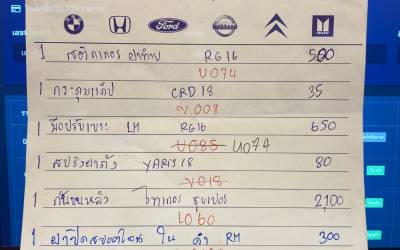 Ford
NISSAN
1 ฝาท้าย RG16 500
U074
1 กระดุมแค๊ป CRD18 35
V.008
1 มือปรับเบาะ LH RG16 650
U085 U074
1 สปริงฝาถัง YARIS18 80
V018
1 กันชนหลัง ไทเกอร์ 2,100
L060
1 ฝาปิด ใน ดำ RH 300